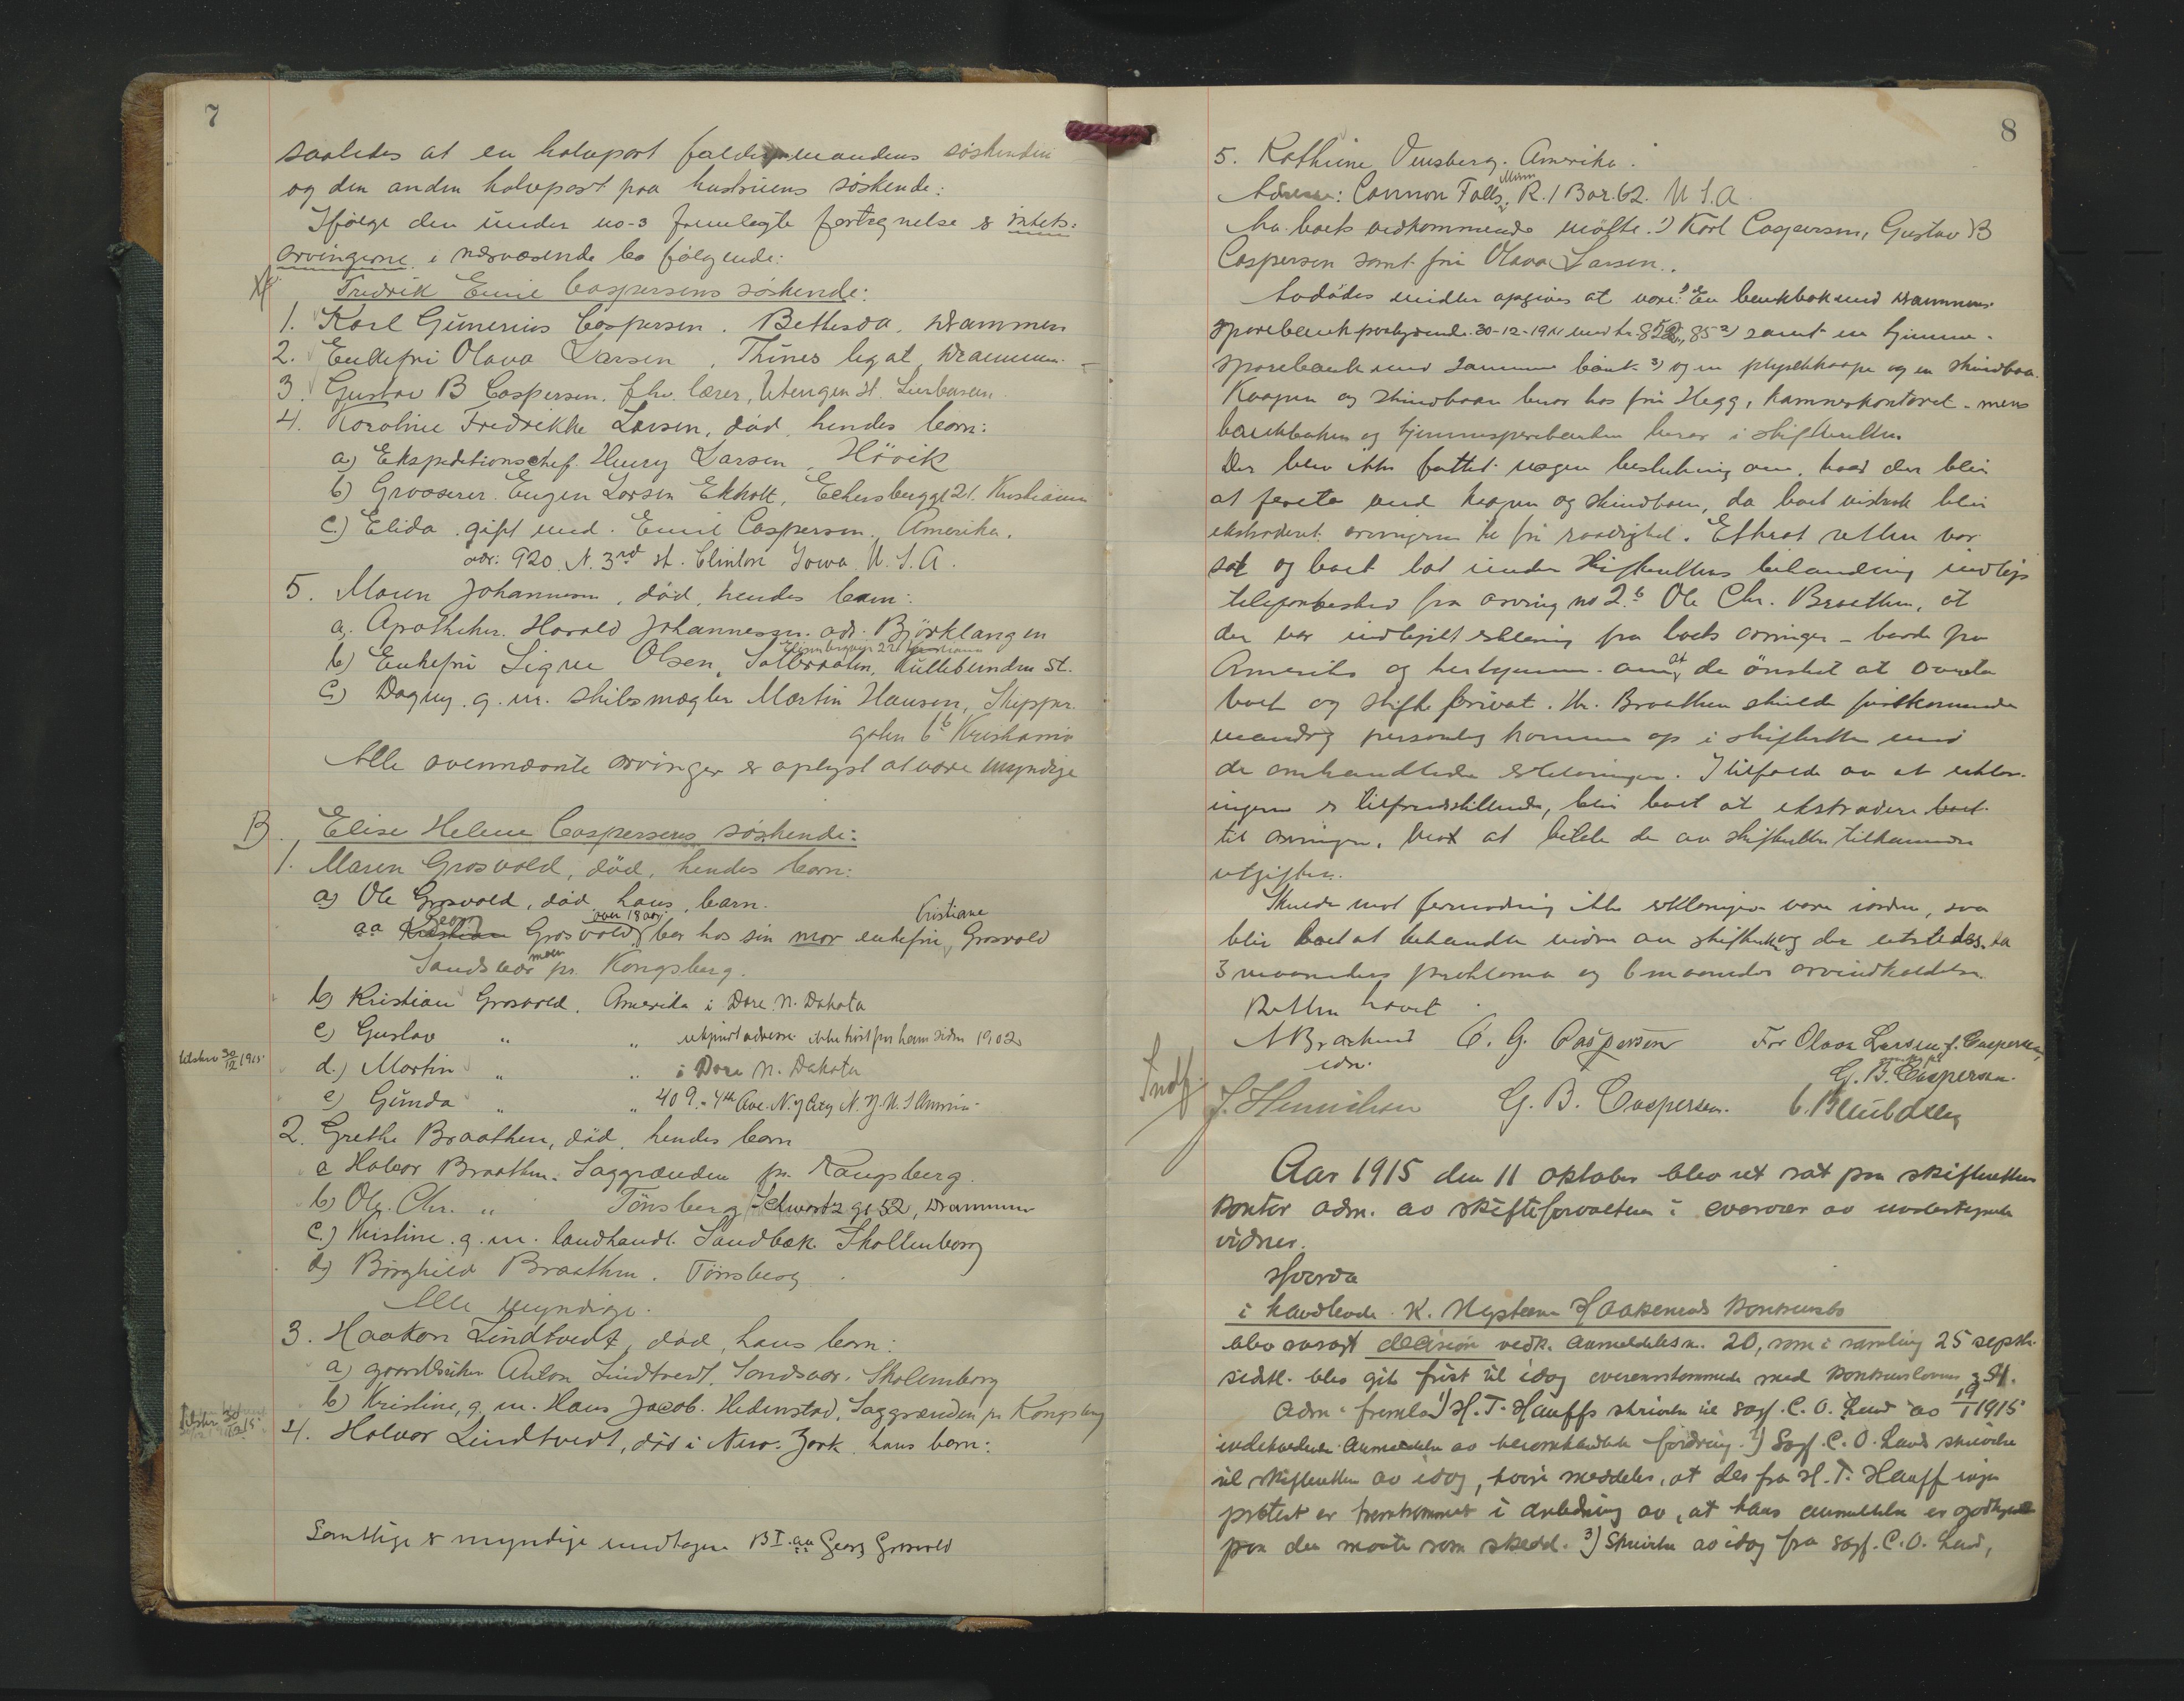 7
saaledes at en halvpart falder mandens søskende
og den anden halvpart paa hustruens søskende:
Ifølge den under no-3 fremlagte fortegnelse er intets-
arvingerne i nærværende bo følgende:
Fredrik Emil Caspersens søskende:
1. Karl Gunerius Caspersen. Bethesda, Drammen
2. Enkefru Olava Larsen, Thines legat, Drammen.
3. Gustav B Caspersen. fhv. lærer, Utengen st.
4. Karoline Fredrikke Larsen, død, hendes barn:
a) Ekspeditionschef. Henry Larsen, Hövik
b) Grosserer. Eugen Larsen Ekholt, Eckersberggt 21. Kristiania
c) Elida gift med Emil Caspersen, Amerika.
adr: 920 N. 3rd st. Clinton Iowa U.S.A.
5. Maren Johannesen, død, hendes barn:
a. Apotheker. Harald Johannessen. adr. Björklangen
b) Enkefru Signe Olsen, Kullebunden st.
c) Dagny. g. m. skibsmægler Martin Hansen, Skippr.
gaten 6b Kristiania
Alle ovennævnte arvinger er oplyst at være myndige
B. Elise Helene Caspersens søskende:
1. Maren Grosvold, død, hendes barn:
a) Ole Grosvold, død hans barn.
aa Kristian Georg Grosvold, over 18 aar bor hos sin mor enkefru Kristiane Grosvold
Sandsvær pr. Kongsberg.
b) Kristian Grosvold. Amerika i Dore N. Dakota
c) Gustav " " ukjendt adresse ikke hørt fra ham siden 1902
tilskrev 30/12 1915
d.) Martin " " i Dore N. Dakota
e) Gunda " " 409.-4th Ave. N.Y City N.Y. U.S Amerika
2. Grethe Braathen, død, hendes barn
a Halvor Braathen. Saggrænden pr. Kongsberg.
b) Ole Chr. " Tönsberg Schwartz gt 52, Drammen
c.) Kristine. g. m. landhandl. Sandbæk. Skollenborg
d) Borghild Braathen. Tönsberg.
Alle myndige.
3. Haakon Lindtvedt, død, hans barn:
a) gaardbruker Anton Lindtvedt, Sandsvær. Skolenborg
b) Kristine, g. m. Hans Jacob. Hedenstad, Saggrænden pr Kongsberg
4. Halvor Lindtvedt, død i New-York hans barn:
Samtlige er myndige undtagen B I. aa Georg Grosvold
8
5. Kathrine Amerika.
Adresse: Cannon Falls, Minn R.1 Box.62. U.S.A.
For boets vedkommende møtte. 1) Karl Caspersen, Gustav B
Caspersen samt fru Olava Larsen.
Avdødes midler opgives at være: 1) En bankbok med Drammens
Sparebank paalydende 30-12-1911 med kr. 85 2) samt en hjemme-
sparebank med samme bank. 3) og en plydskaape og en skindboa.
Kaapen og skindboaen beror hos fru Hegg, kamnerkontoret - mens
bankboken og hjemmesparebanken beror i skifteretten
Der blev ikke fattet nogen beslutning om, hvad der blir
at foreta med kaapen og skindboaen, da boet mistenk blir
ekstraderet arvingerne til fri raadighet. Efterat retten var
sat og boet tat under skifterettens behandling indløp
telefonbesked fra arving no 2.b Ole Chr. Braathen, at
der var indhentet erklæring fra boets arvinger - baade fra
Amerika og herhjemme - om at de ønsket at overta
boet og skifte privat. Hr. Braathen skulde førstkommende
mandag personlig komme op i skifteretten med
de omhandlede erklæringer. I tilfælde av at erklær-
ingerne er tilfredsstillende, blir boet at ekstradere boet
til arvingerne, mot at betale de av skifteretten tilkommende
utgifter.
Skulde mot formodning ikke erklæringen være iorden, saa
blir boet at behandle videre av skifteretten og der utstedes da
3 maaneders proklama og 6 maaneders arvindkaldelse.
Retten hævet
C. G. Caspersen For Olava Larsen f. Caspersen,
G. B. Caspersen.
G. B. Caspersen.
Aar 1915 den 11 oktober blev ret sat paa skifterettens
kontor adm. av skifteforvalteren i overvær av undertegnede
vidner.
Hvorda
i handlende K. Haakenstads konkursbo
blev avsagt decision vedk. anmeldelsesn. 20, som i samling 25 septbr.
sidstl. blev git frist til idag overensstemmende med konkurslovens § 94.
Adm. fremla 1) H. T. Hauffs skrivelse til sagf. C. O. Lund av 9/1 1915
indeholdende anmeldelse av heromhandlede fordring. 2) Sagf. C. O. Lunds skrivelse
til skifteretten av idag, hvori meddeles, at der fra H. T. Hauff ingen
protest er fremkommet i anledning av, at hans anmeldelse er godkjendt
paa den maate som skedd. 3) Skrivelse av idag fra sagf. C. O. Lund,